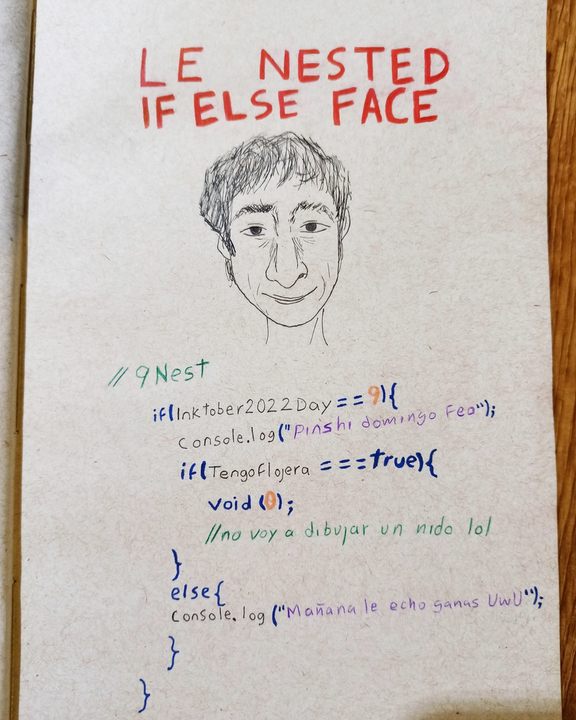 LE NESTED
IF ELSE FACE
// 9Nest
if(Inktober2022Day == 9){
console.log("Pinshi domingo Feo");
if(TengoFlojera ===true){
void(0);
//no voy a dibujar un nido lol
}
else{
console.log("Mañana le echo ganas UwU");
}
}